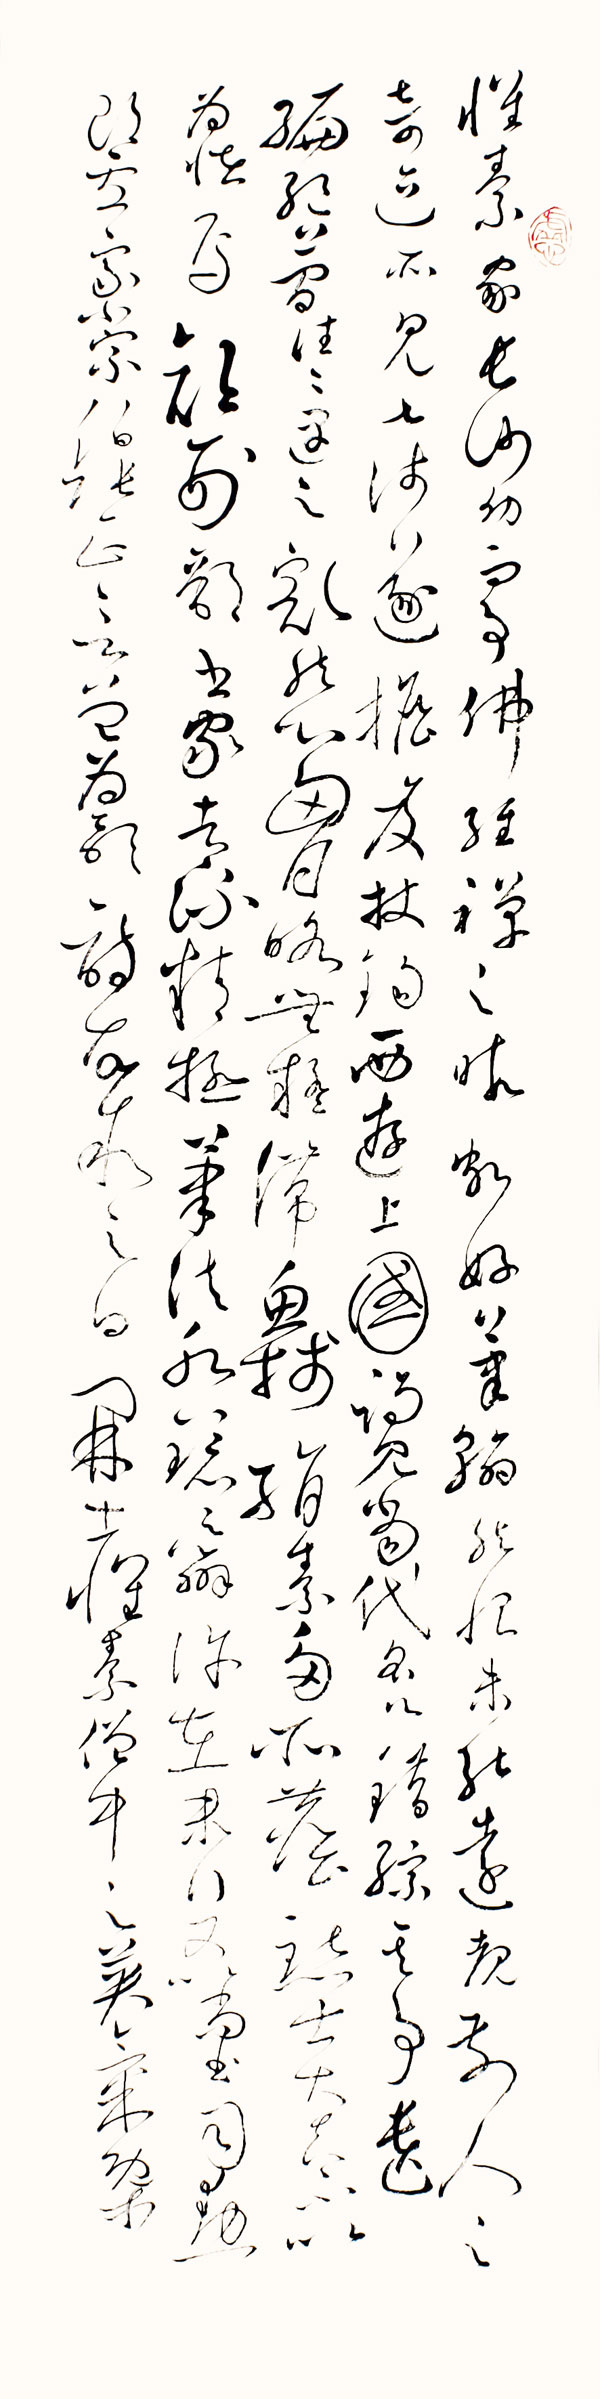 懷素家長沙幼而事佛經禪之暇頗好筆翰然恨未能遠覩前人之
奇迹所見甚淺遂擔笈杖錫西遊上國謁見當代名公錯綜其事遺
編絶簡往々遇之豁然心胸略無疑滯魚牋絹素多所塵點士大夫不以
為恠焉顔刑部書家者流精極筆法水鏡之辯許在末行又以尚書司勳
郎盧象小宗伯張正言曾為歌詩故敘之曰開士懷素僧中之英氣概